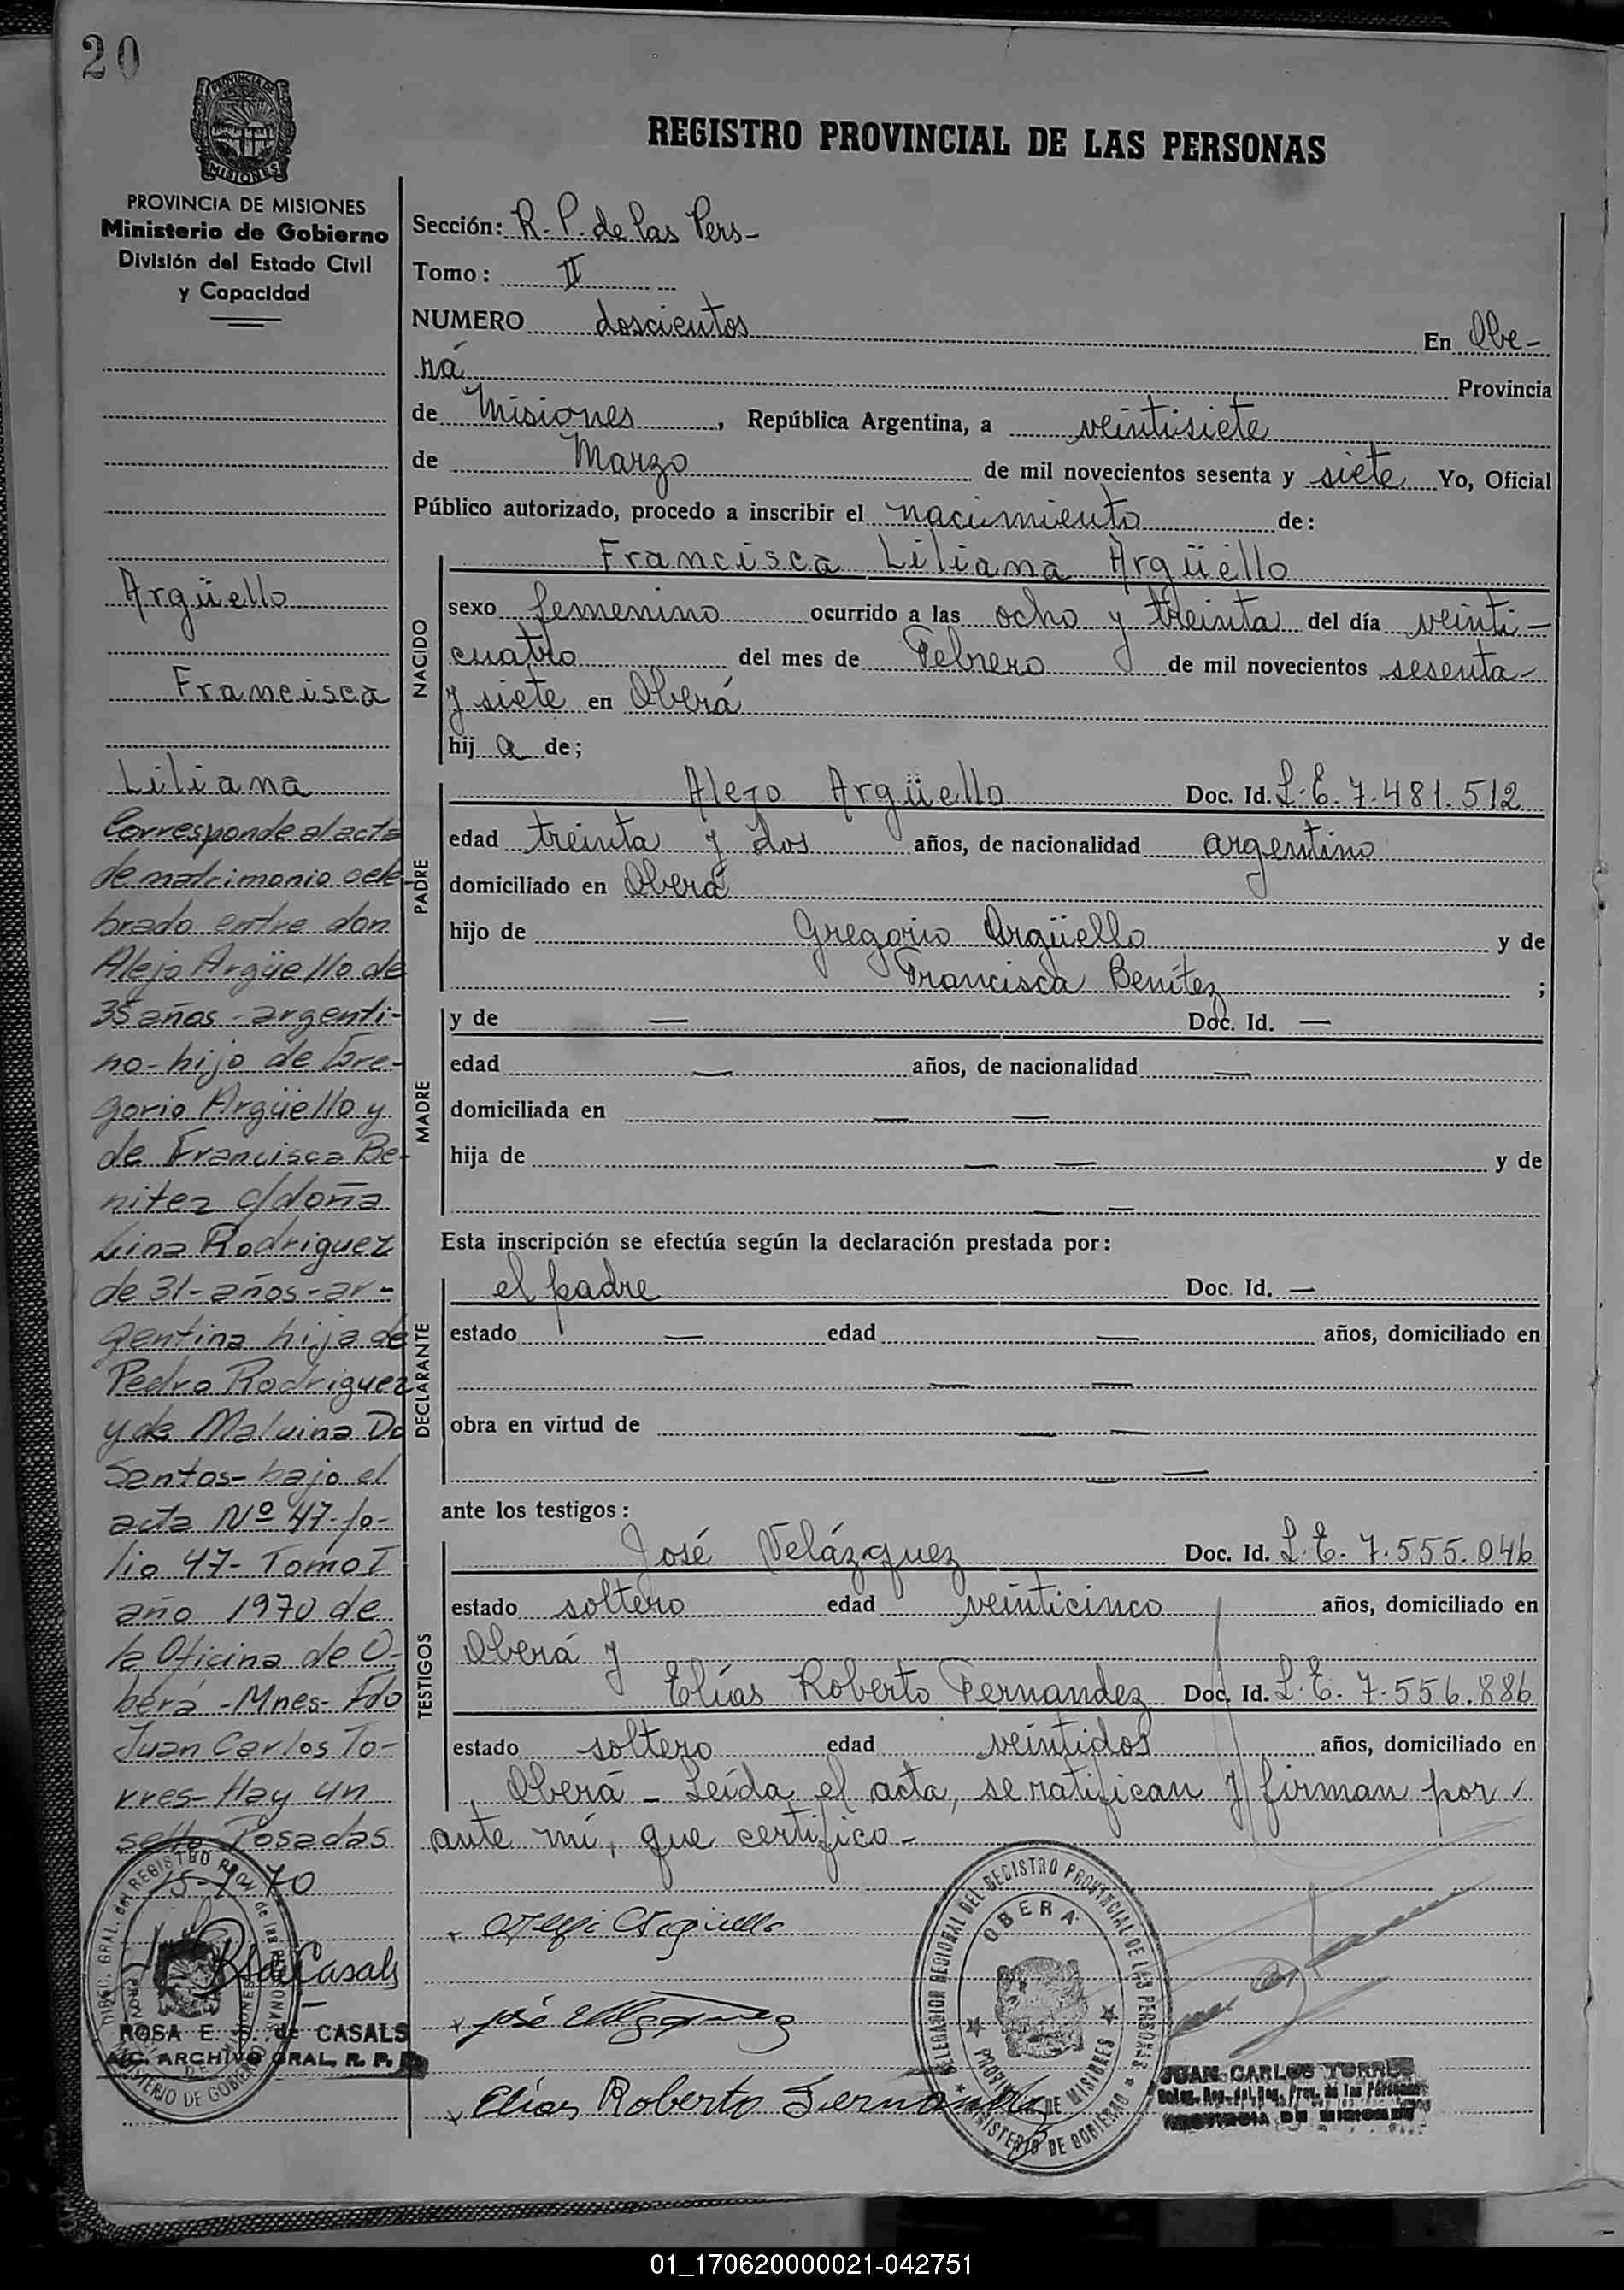 20
PROVINCIA DE MISIONES
REGISTRO PROVINCIAL DE LAS PERSONAS
PROVINCIA DE MISIONES
Ministerio de Gobierno
División del Estado Civil
y Capacidad
Argüello
Francisca
Liliana
Corresponde al acta
de matrimonio cele-
brado entre don
Alejo Argüello de
35 años - argenti-
no - hijo de Gre-
gorio Argüello y
de Francisca Be-
nitez c/doña
Lina Rodriguez
de 31 - años - ar-
gentina hija de
Pedro Rodriguez
y de Malvina Do
Santos - bajo el
acta Nº 47 - fo-
lio 47 - Tomo I
año 1970 de
la Oficina de O-
berá - Mnes - Fdo
Juan Carlos To-
rres - Hay un
sello Posadas
ROSA E. S. de CASALS
ARCHIVO GRAL. R. P.
Sección: R. P. de las Pers-
Tomo: II
NUMERO doscientos En Obe-
rá Provincia
de Misiones, República Argentina, a veintisiete
de Marzo de mil novecientos sesenta y siete Yo, Oficial
Público autorizado, procedo a inscribir el nacimiento de:
NACIDO
Francisca Liliana Argüello
sexo femenino ocurrido a las ocho y treinta del día veinti-
cuatro del mes de Febrero de mil novecientos sesenta
y siete en Oberá
hija de;
PADRE
Alejo Argüello Doc. Id. L. E. 7.481.512
edad treinta y dos años, de nacionalidad argentino
domiciliado en Oberá
hijo de Gregorio Argüello y de
Francisca Benítez ;
MADRE
y de — Doc. Id. —
edad — años, de nacionalidad —
domiciliada en — —
hija de — — y de
— —
Esta inscripción se efectúa según la declaración prestada por:
DECLARANTE
el padre Doc. Id. —
estado — edad — años, domiciliado en
— —
obra en virtud de — —
— —
ante los testigos:
TESTIGOS
José Velázquez Doc. Id. L. E. 7.555.046
estado soltero edad veinticinco años, domiciliado en
Oberá y
Elías Roberto Fernandez Doc. Id. L. E. 7.556.886
estado soltero edad veintidos años, domiciliado en
Oberá - Leída el acta, se ratifican y firman por
ante mí, que certifico -
Alejo Argüello
José Velazquez
Elias Roberto Fernandez
DELEGACION REGIONAL DEL REGISTRO PROVINCIAL DE LAS PERSONAS
OBERA
PROVINCIA DE MISIONES
MINISTERIO DE GOBIERNO
JUAN CARLOS TORRES
PROVINCIA DE MISIONES
01_170620000021-042751